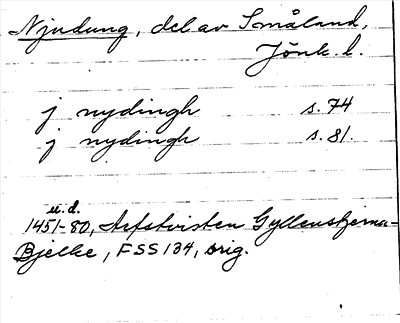 Njudung, del av Småland,
Jönk. l.
j nydingh s. 74
j nydingh s. 81.
u.d.
1451-80, Arfstvisten Gyllenstjerna-
Bjelke, FSS 134, orig.